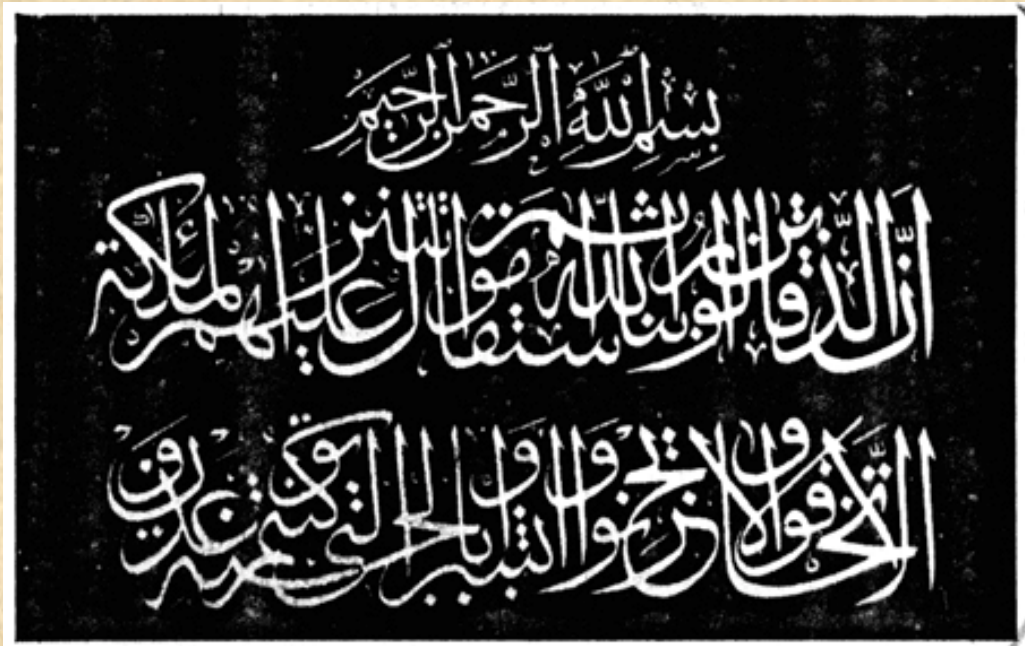 بِسْمِ اللَّهِ الرَّحْمَنِ الرَّحِيمِ
إنَّ الَّذين قالوا ربنا الله ثم استقاموا تتنزل عليهم الملئكة
ألَّا تخافوا ولا تحزنوا وابشروا بالجنة التي كنتم توعدون